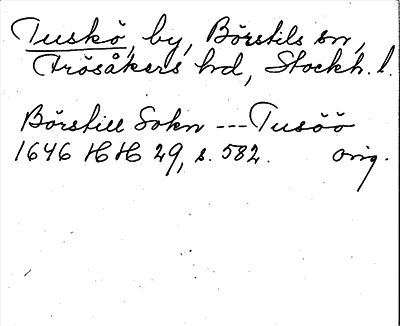 Tuskö, by, Börstils sn,
Frösåkers hd, Stockh. l.
Börstill Sokn --- Tusöö
1646 HH 29, s. 582. orig.